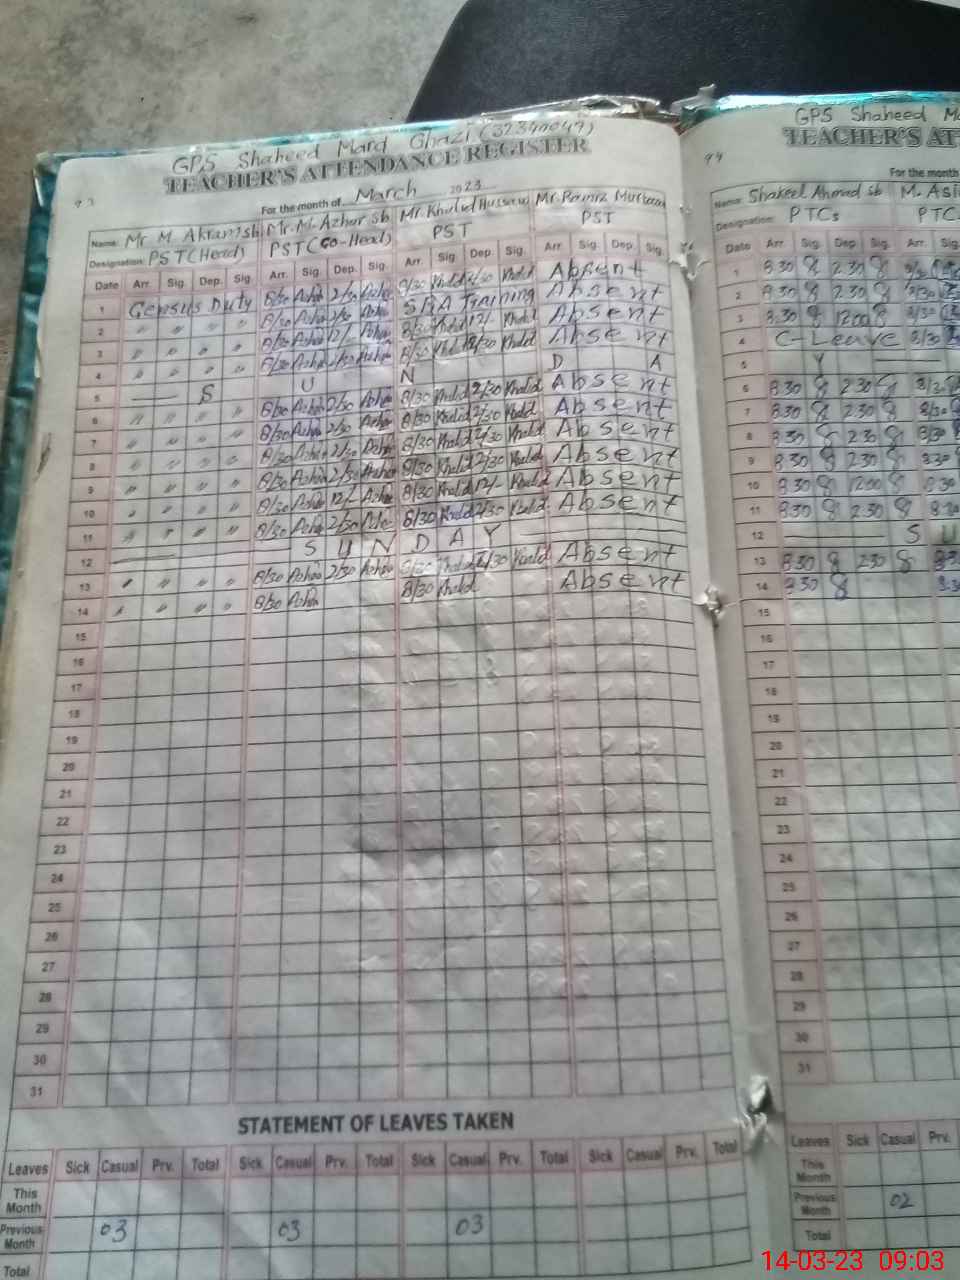 GPS Shaheed Mard Ghazi (32340049)
TEACHER'S ATTENDANCE REGISTER
93
For the month of March 2023
Name: Mr M. Akram sb Mr. M. Azhar sb Mr Khalid Hussain Mr Ramiz Murtaza
Designation: PST (Head) PST (Co-Head) PST PST
Date Arr. Sig. Dep. Sig. Arr. Sig. Dep. Sig. Arr. Sig. Dep. Sig. Arr. Sig. Dep. Sig.
1 Census Duty 8/30 Azhar 2/30 Azhar 8/30 Khalid 2/30 Khalid Absent
2 " " " " 8/30 Azhar 2/30 Azhar SBA Training Absent
3 " " " " 8/30 Azhar 12/- Azhar 8/30 Khalid 12/- Khalid Absent
4 " " " " 8/30 Azhar 2/30 Azhar 8/30 Khalid 2/30 Khalid Absent
5 S U N D A
6 " " " " 8/30 Azhar 2/30 Azhar 8/30 Khalid 2/30 Khalid Absent
7 " " " " 8/30 Azhar 2/30 Azhar 8/30 Khalid 2/30 Khalid Absent
8 " " " " 8/30 Azhar 2/30 Azhar 8/30 Khalid 2/30 Khalid Absent
9 " " " " 8/30 Azhar 2/30 Azhar 8/30 Khalid 2/30 Khalid Absent
10 " " " " 8/30 Azhar 12/- Azhar 8/30 Khalid 12/- Khalid Absent
11 " " " " 8/30 Azhar 2/30 Azhar 8/30 Khalid 2/30 Khalid Absent
12 S U N D A Y
13 " " " " 8/30 Azhar 2/30 Azhar 8/30 Khalid 2/30 Khalid Absent
14 " " " " 8/30 Azhar 8/30 Khalid Absent
15
16
17
18
19
20
21
22
23
24
25
26
27
28
29
30
31
STATEMENT OF LEAVES TAKEN
Leaves Sick Casual Prv. Total Sick Casual Prv. Total Sick Casual Prv. Total Sick Casual Prv. Total
This Month
Previous Month 03 03 03
Total
GPS Shaheed
TEACHER'S AT
94
For the month
Name: Shakeel Ahmad sb M.
Designation: PTCs PTC
Date Arr. Sig. Dep. Sig. Arr. Sig.
1 8.30 2.30 8/30
2 8.30 2.30 8/30
3 8.30 1200 8/30
4 C-Leave 8/30
5 Y
6 8.30 2.30 8/30
7 8.30 2.30 8/30
8 8.30 2.30 8/30
9 8.30 2.30 8.30
10 8.30 1200 8.30
11 8.30 2.30 8.30
12 S U
13 8.30 2.30
14 8.30
15
16
17
18
19
20
21
22
23
24
25
26
27
28
29
30
31
Leaves Sick Casual Prv.
This Month
Previous Month 02
Total
14-03-23 09:03